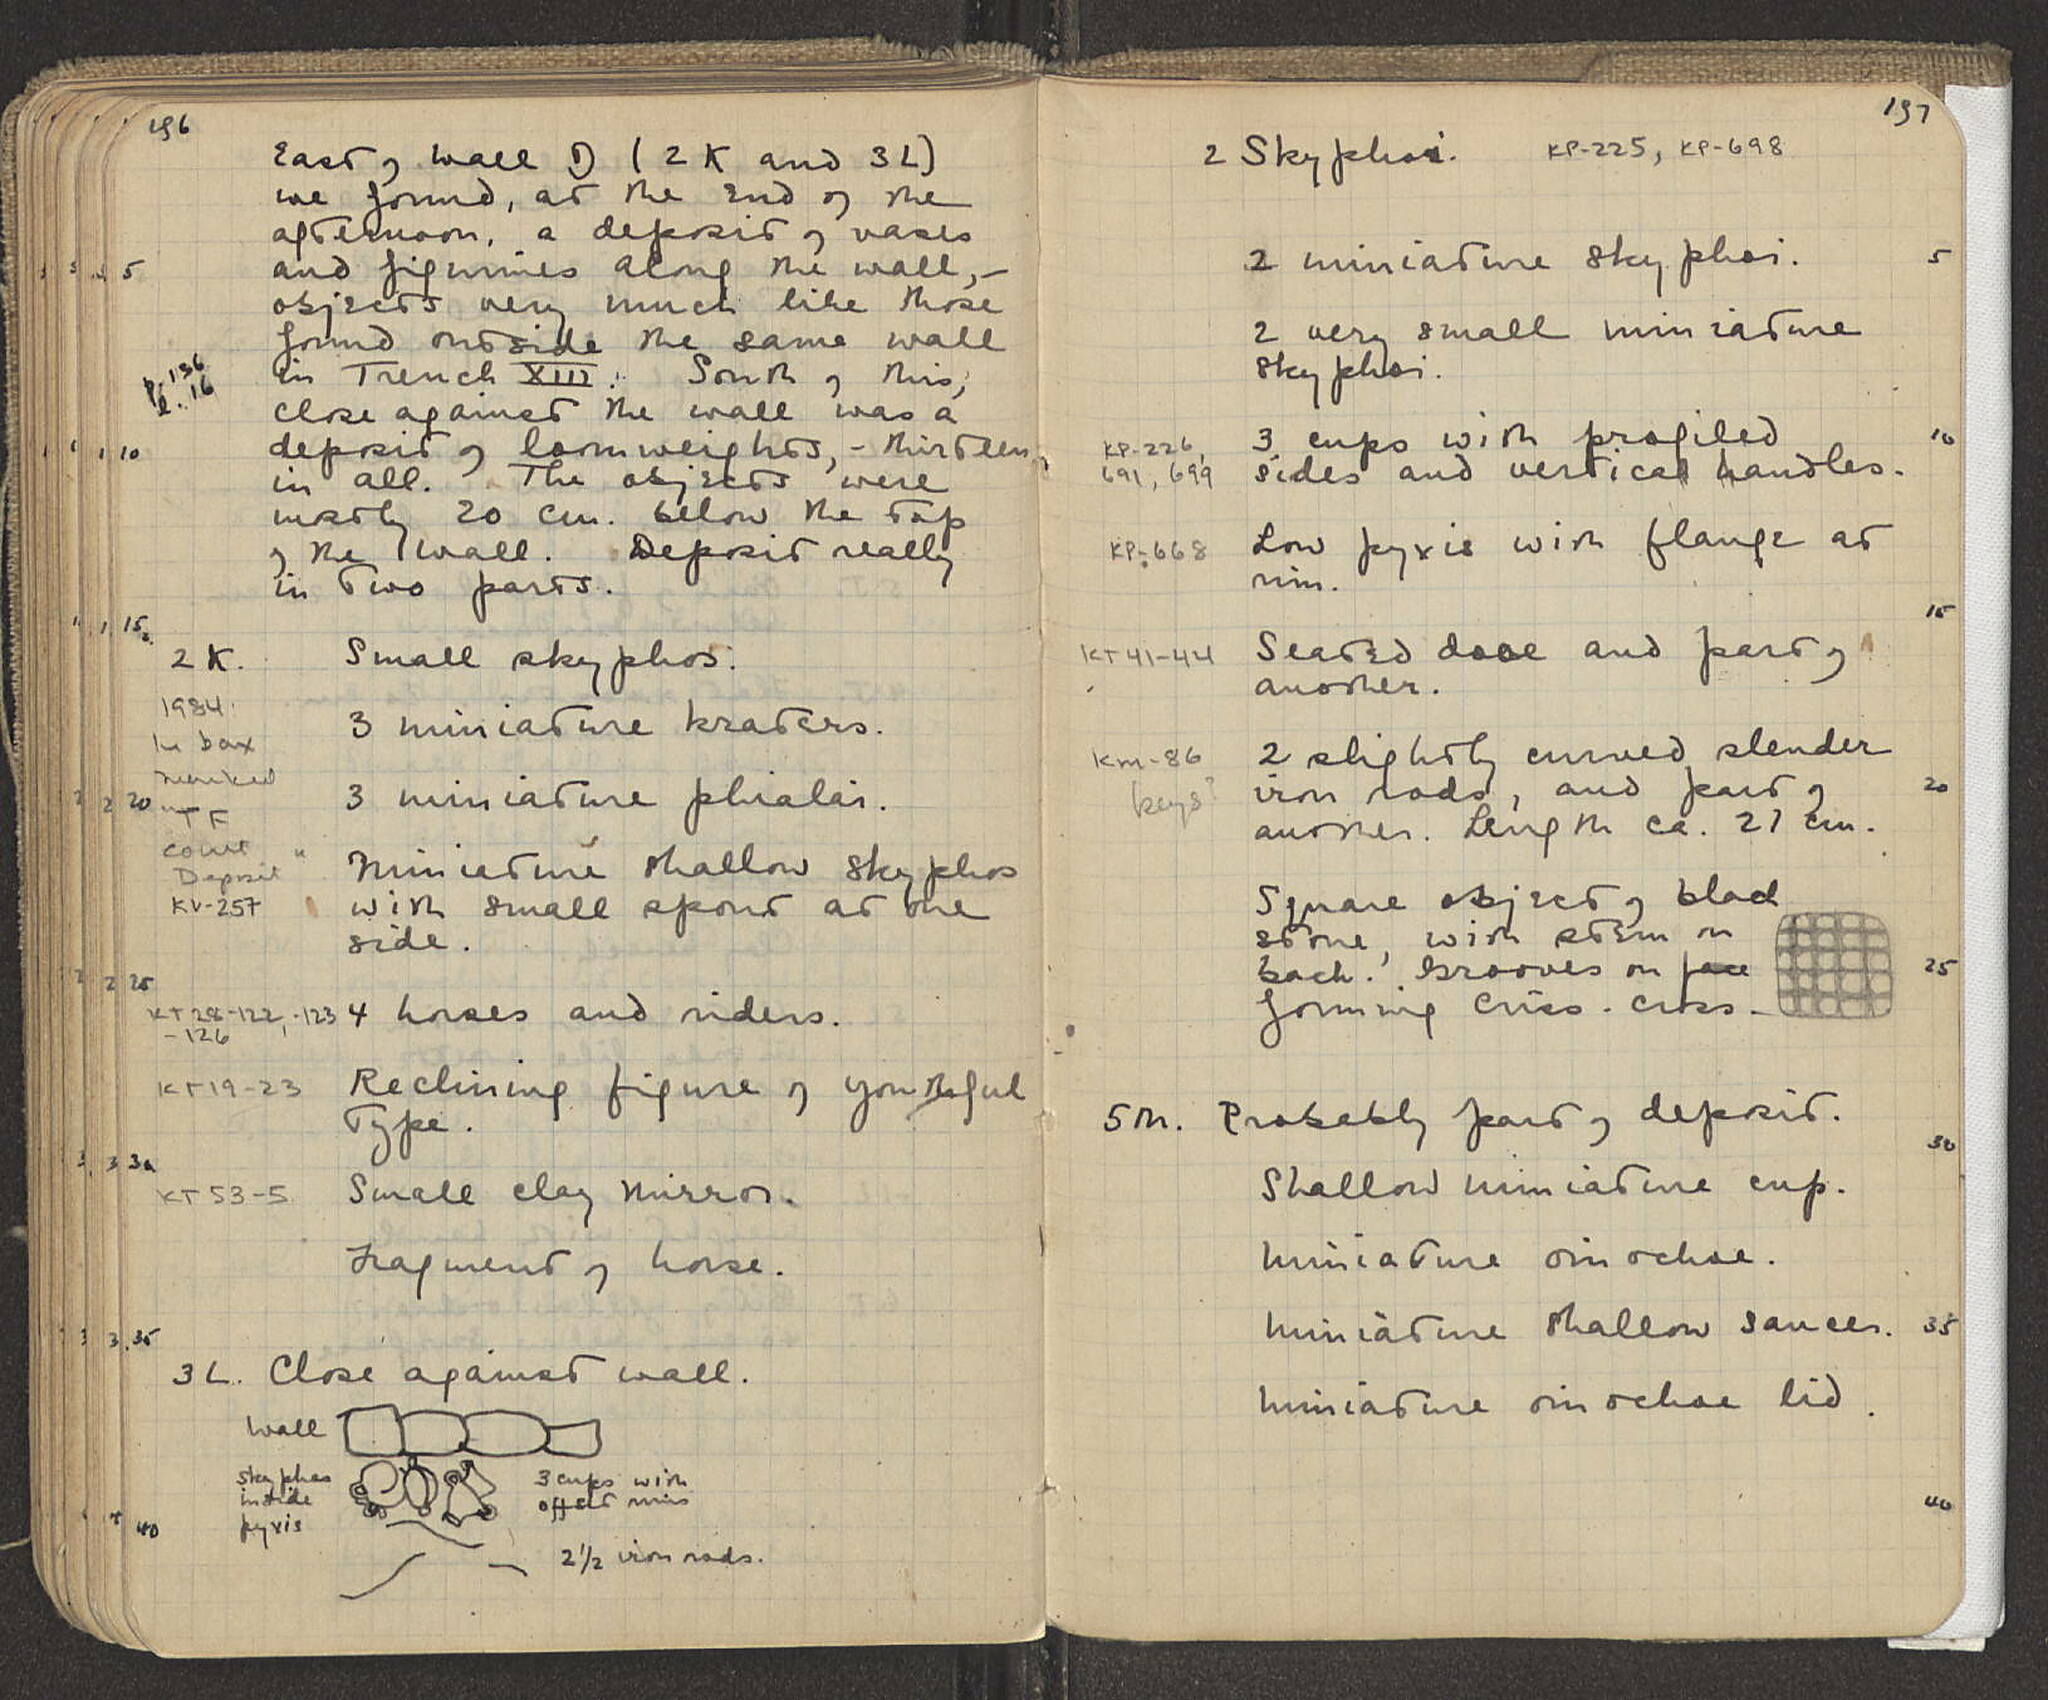 196
East of wall D (2K and 3L)
we found, at the end of the
afternoon, a deposit of vases
and figurines along the wall, –
5
objects very much like those
found outside the same wall
p. 136
l. 16
in Trench XIII. South of this,
close against the wall was a
deposit of loomweights, – thirteen,
10
in all. The objects were
mostly 20 cm. below the top
of the wall. Deposit really
in two parts.
15
2K. Small skyphos.
1984
In box
marked
"TF
Court
Deposit "
KV-257
3 miniature kraters.
3 miniature phialai.
20
Miniature shallow skyphos
with small spout at one
side.
25
KT 28-122, -123
-126
4 horses and riders.
KT 19-23
Reclining figure of youthful
type.
30
KT 53-5
Small clay mirror.
Fragment of horse.
35
3L. Close against wall.
Wall
skyphos
inside
pyxis
3 cups with
offset rims
40
2 1/2 iron rods.
197
2 Skyphoi. KP-225, KP-698
2 miniature skyphoi.
5
2 very small miniature
skyphoi.
KP-226,
691, 699
3 cups with profiled
10
sides and vertical handles.
KP-668
Low pyxis with flange at
rim.
15
KT 41-44
Seated dove and part of
another.
KM-86
keys?
2 slightly curved slender
iron rods, and part of
20
another. Length ca. 21 cm.
Square object of black
stone, with stem on
back. Grooves on face
25
forming criss-cross.
5M. Probably part of deposit.
30
Shallow miniature cup.
Miniature oinochoe.
Miniature shallow saucer.
35
Miniature oinochoe lid.
40